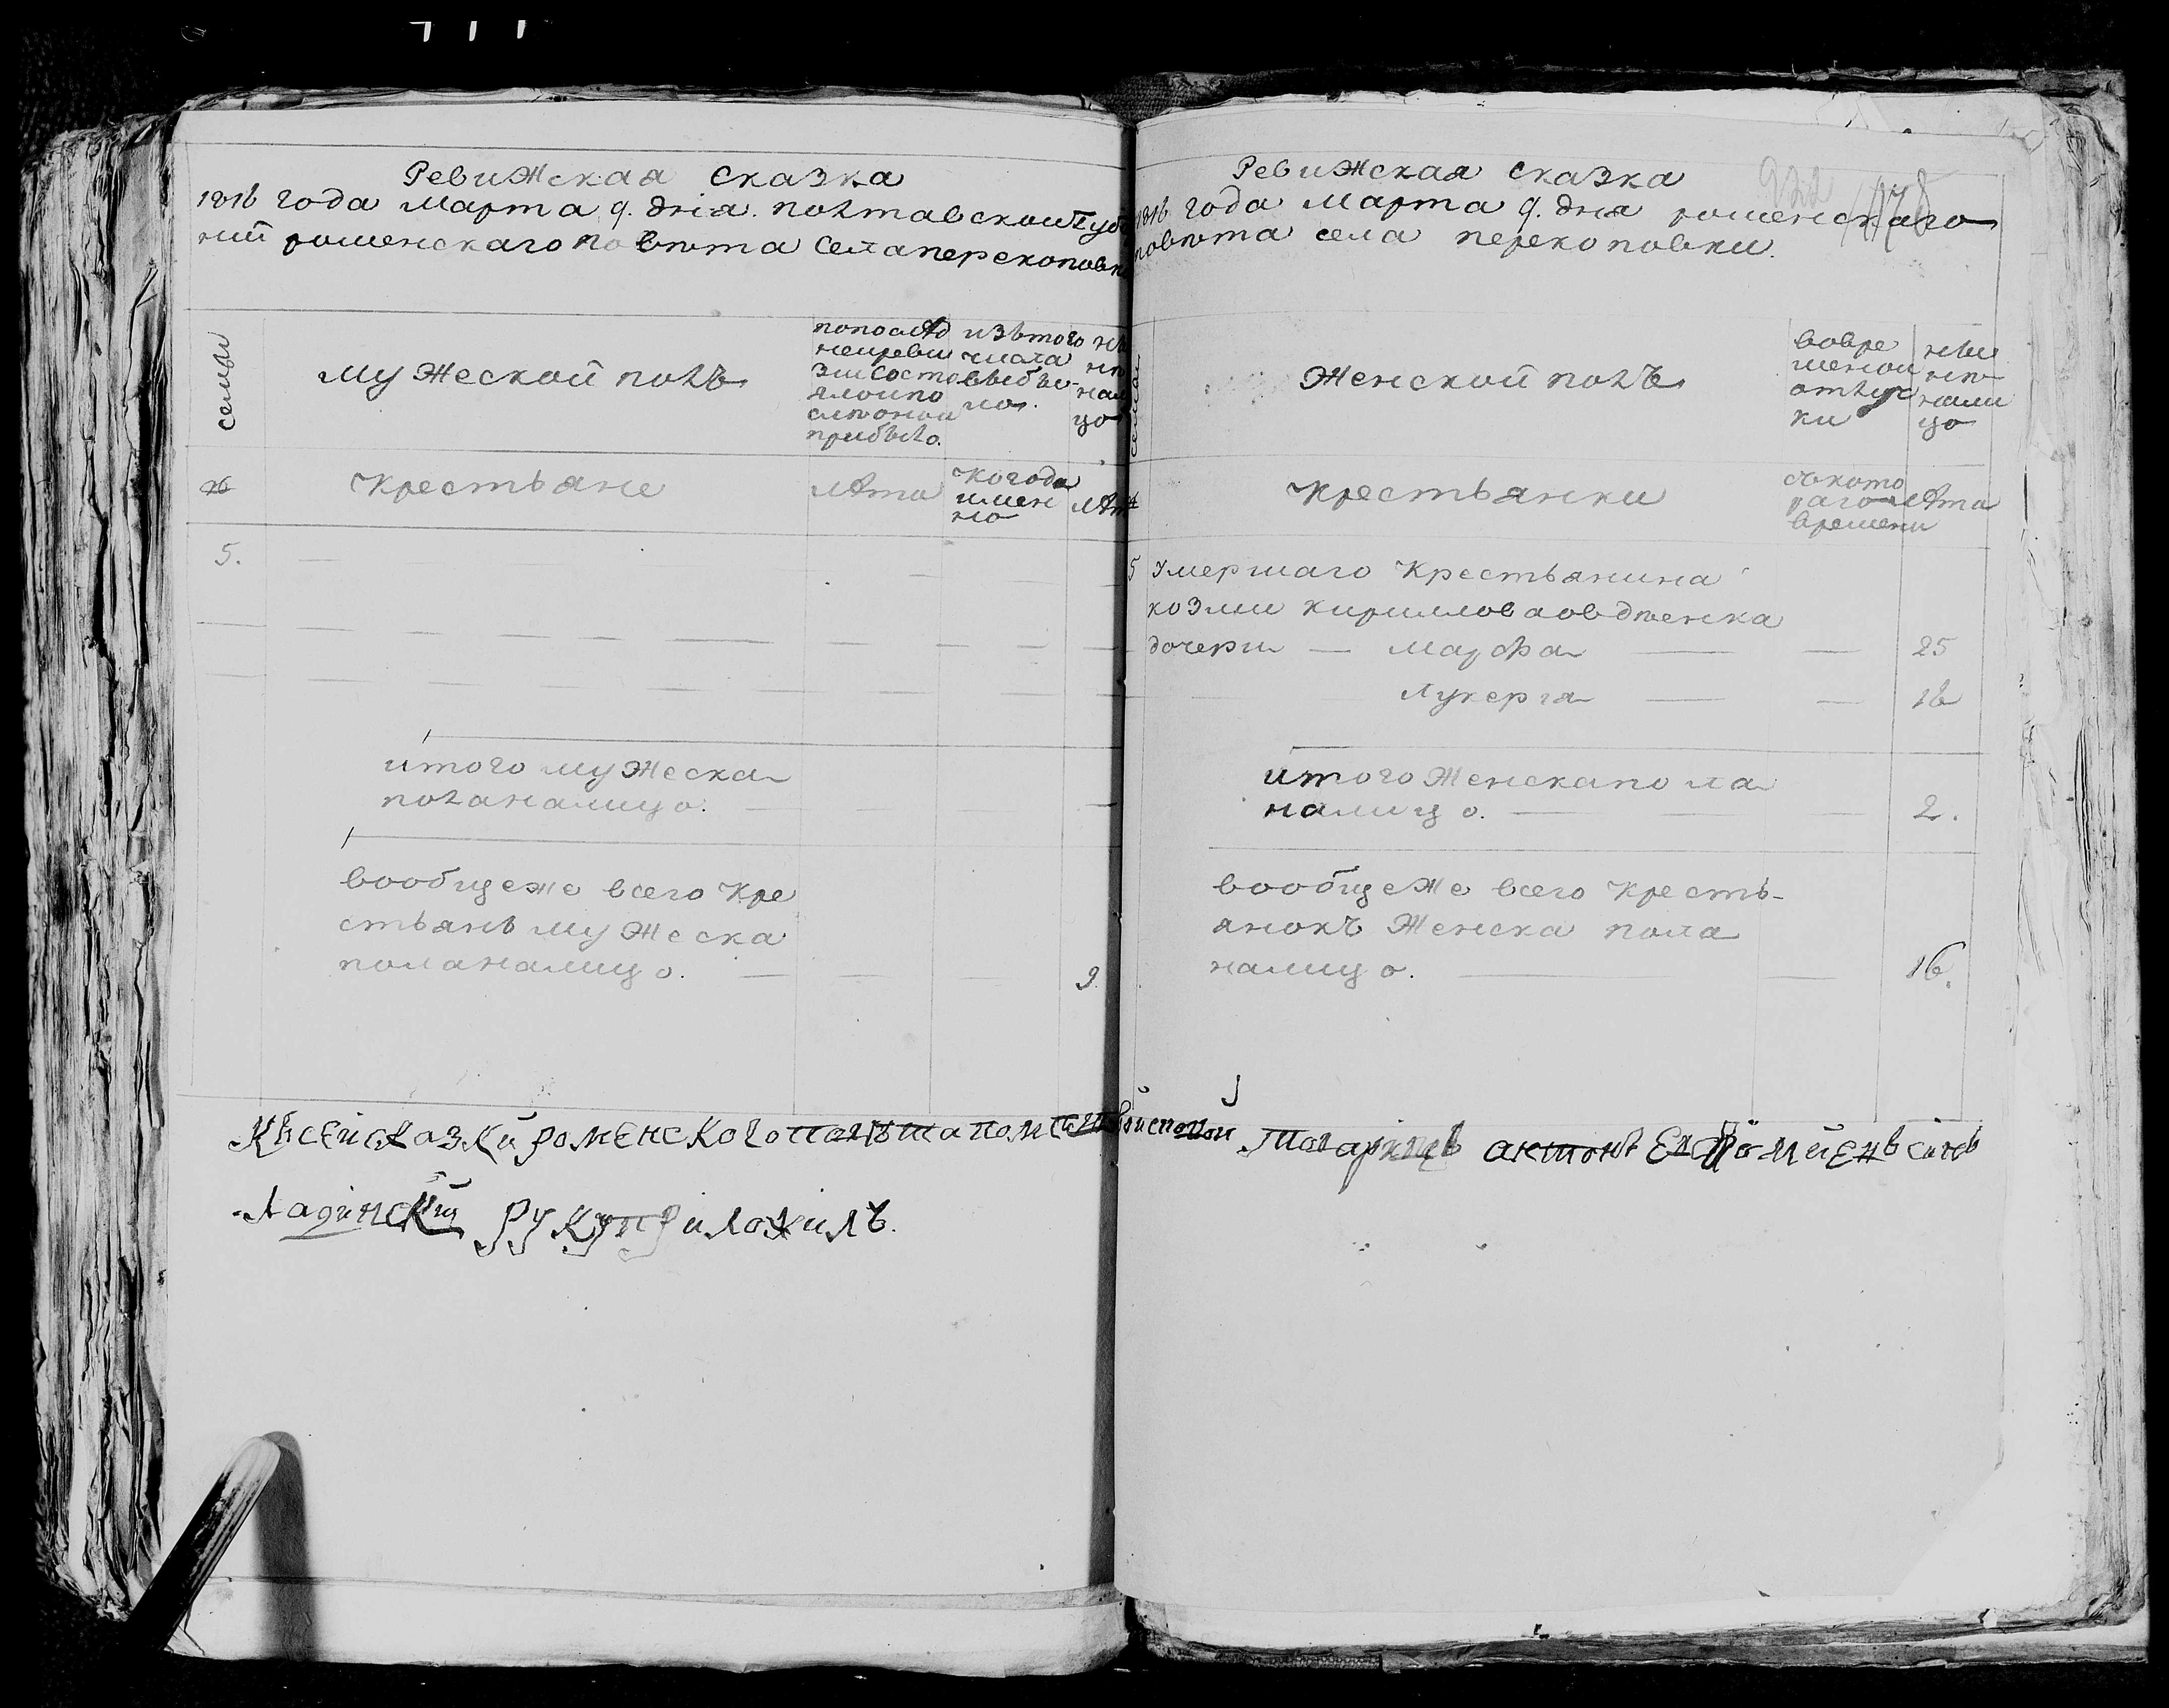 Ревижская сказка
1816 года марта 9. дня. полтавской губе
нии роменскаго повѣта села перекоповки
семьи
мужеской полъ
попослѣд
неиреви
зии состо
ялоипо
слѣ оной
прибыло.
изътого
числа
выбы-
ло.
нынѣ
нали
цо
Крестьяне
лѣта
Когода
имен
но
лѣта
5.
итого мужеска
пола налицо.
вообщеже всего Кре
стьянъ мужеска
пола налицо. 9
Ревижская сказка
1816 года марта 9. дня роменскаго
повѣта села перекоповки.
922
семьи
Женской полъ
вовре
менои
отлуч
ки
ныи
нѣ
нали
цо
крестьянки
съкото
раго
времени
лѣта
5 умершаго Крестьянина
козми кирилова овдѣенка
дочери — марфа 25
лукерія 16
итого Женска пола
налицо. 2.
вообщеже всего кресть-
янокъ Женска пола
налицо. 16.
Къ сей сказки роменского повѣта помѣщикъ войсковой товарищъ антонъ Ефомиенъ синъ
Ладинский руку приложилъ.